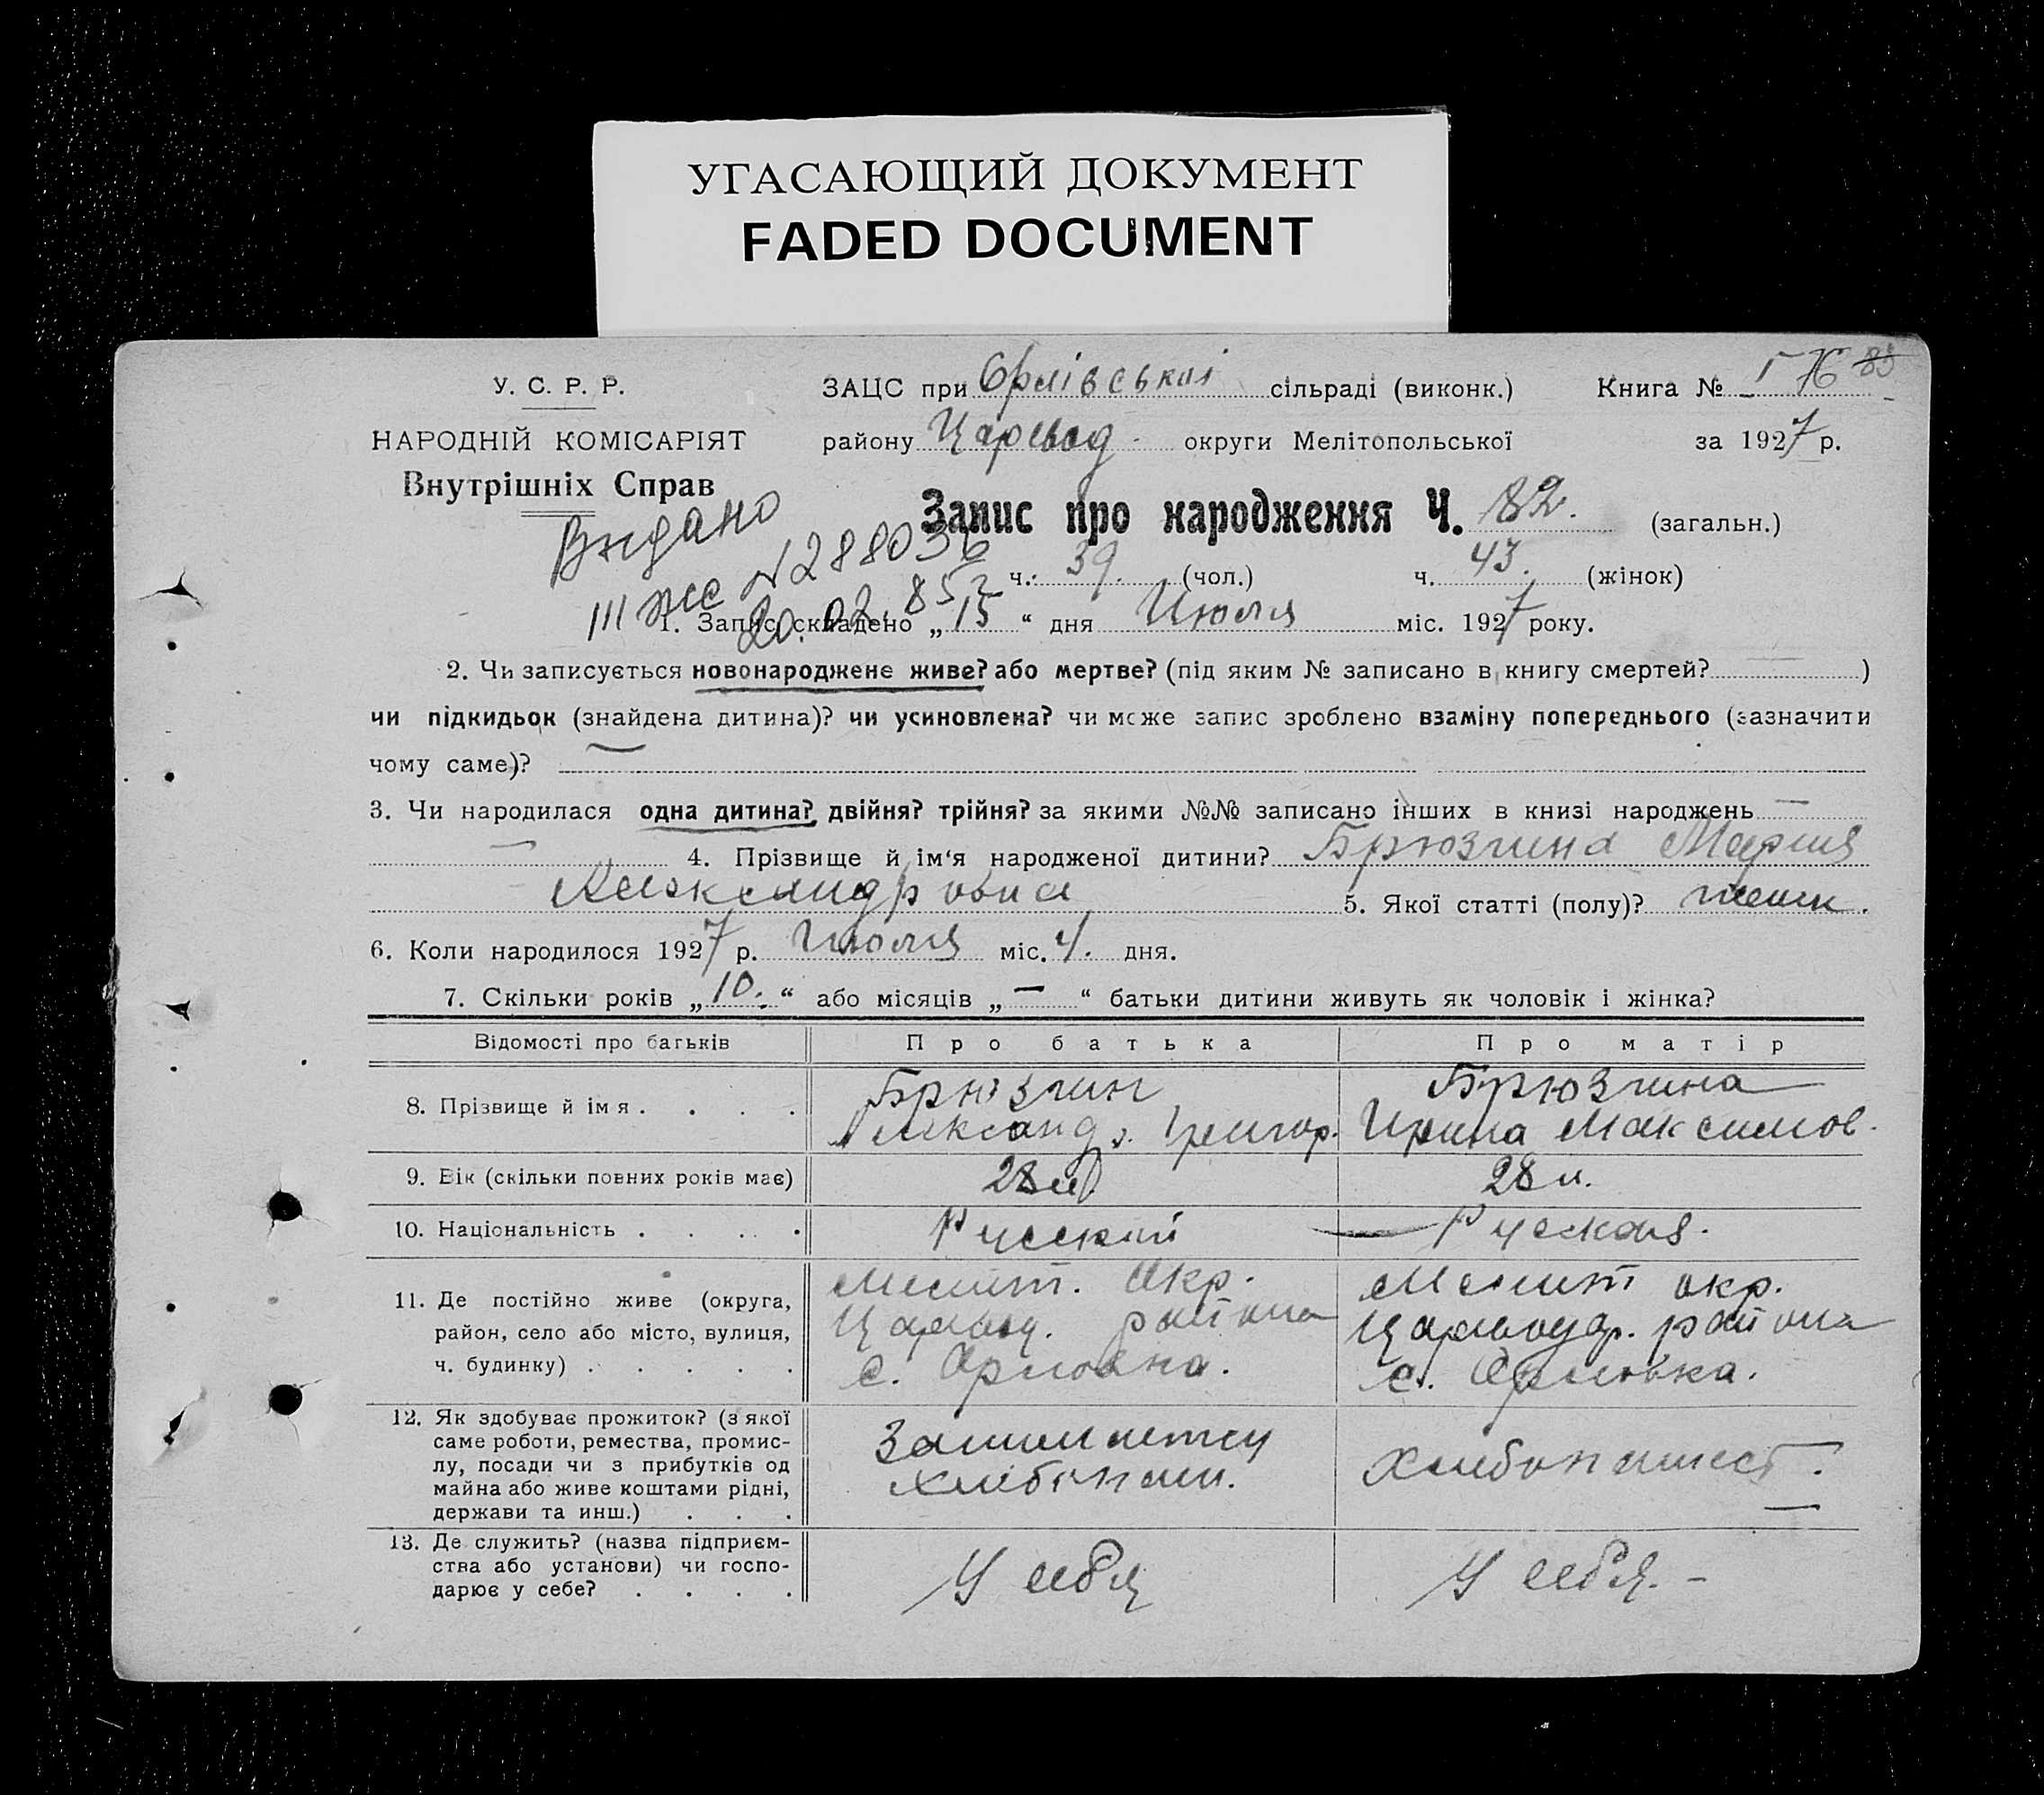 УГАСАЮЩИЙ ДОКУМЕНТ
FADED DOCUMENT
У. С. Р. Р.
НАРОДНІЙ КОМІСАРІЯТ
Внутрішніх Справ
ЗАЦС при Орлівській сільраді (виконк.) Книга №
району Царевод. округи Мелітопольської за 1927 р.
Запис про народження Ч. 82. (загальн.)
Видано
III ЖС N 288036
20.02.85г
ч. 39. (чол.) ч. 43. (жінок)
1. Запис складено „15“ дня Июля міс. 1927 року.
2. Чи записується новонароджене живе? або мертве? (під яким № записано в книгу смертей? )
чи підкидьок (знайдена дитина)? чи усиновлена? чи може запис зроблено взаміну попереднього (зазначити
чому саме)? —
3. Чи народилася одна дитина? двійня? трійня? за якими №№ записано інших в книзі народжень —
— 4. Прізвище й ім‘я народженої дитини? Брюзгина Мария
Александровна 5. Якої статті (полу)? женск.
6. Коли народилося 1927 р. Июля міс. 4. дня.
7. Скільки років „10.“ або місяців „—“ батьки дитини живуть як чоловік і жінка?
Відомості про батьків Про батька Про матір
8. Прізвище й імя . . . .
Брюзгин
Александ. Григор.
Брюзгина
Ирина Максимов.
9. Вік (скільки повних років має) 28 л. 28 л.
10. Національність . . . . Руский Руская.
11. Де постійно живе (округа,
район, село або місто, вулиця,
ч. будинку) . . . . .
Мелит. Окр.
Царевод. района
с. Орловка.
Мелит окр.
Царевод. района
с. Орловка.
12. Як здобуває прожиток? (з якої
саме роботи, ремества, промис-
лу, посади чи з прибутків од
майна або живе коштами рідні,
держави та инш.) . . .
хлебопаш.
хлебопашест.
13. Де служить? (назва підприєм-
ства або установи) чи госпо-
дарює у себе? . . . .
У себя
У себя. -